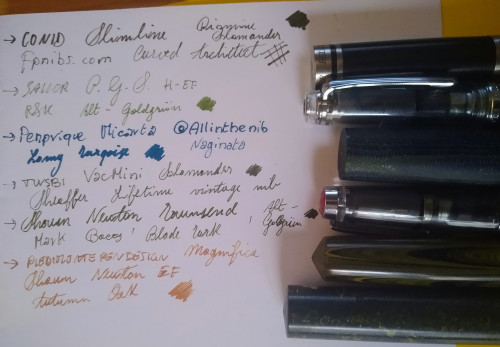 → CONID Slimline Diamine Salamander
Fpnibs.com Curved Architect
→ SAILOR P.G.S H-EF
R&K Alt-Goldgrün
→ Penprvique Micarta @Allinthenib
Lamy Turqoise Naginata
→ TWSBI VacMini Salamander
Sheaffer Lifetime vintage nib
→ Shawn Newton Townsend Alt-Goldgrün
Mark Bacas' Blade
→ PENDESIGN Magnifica
Shawn Newton EF
Autumn Oak